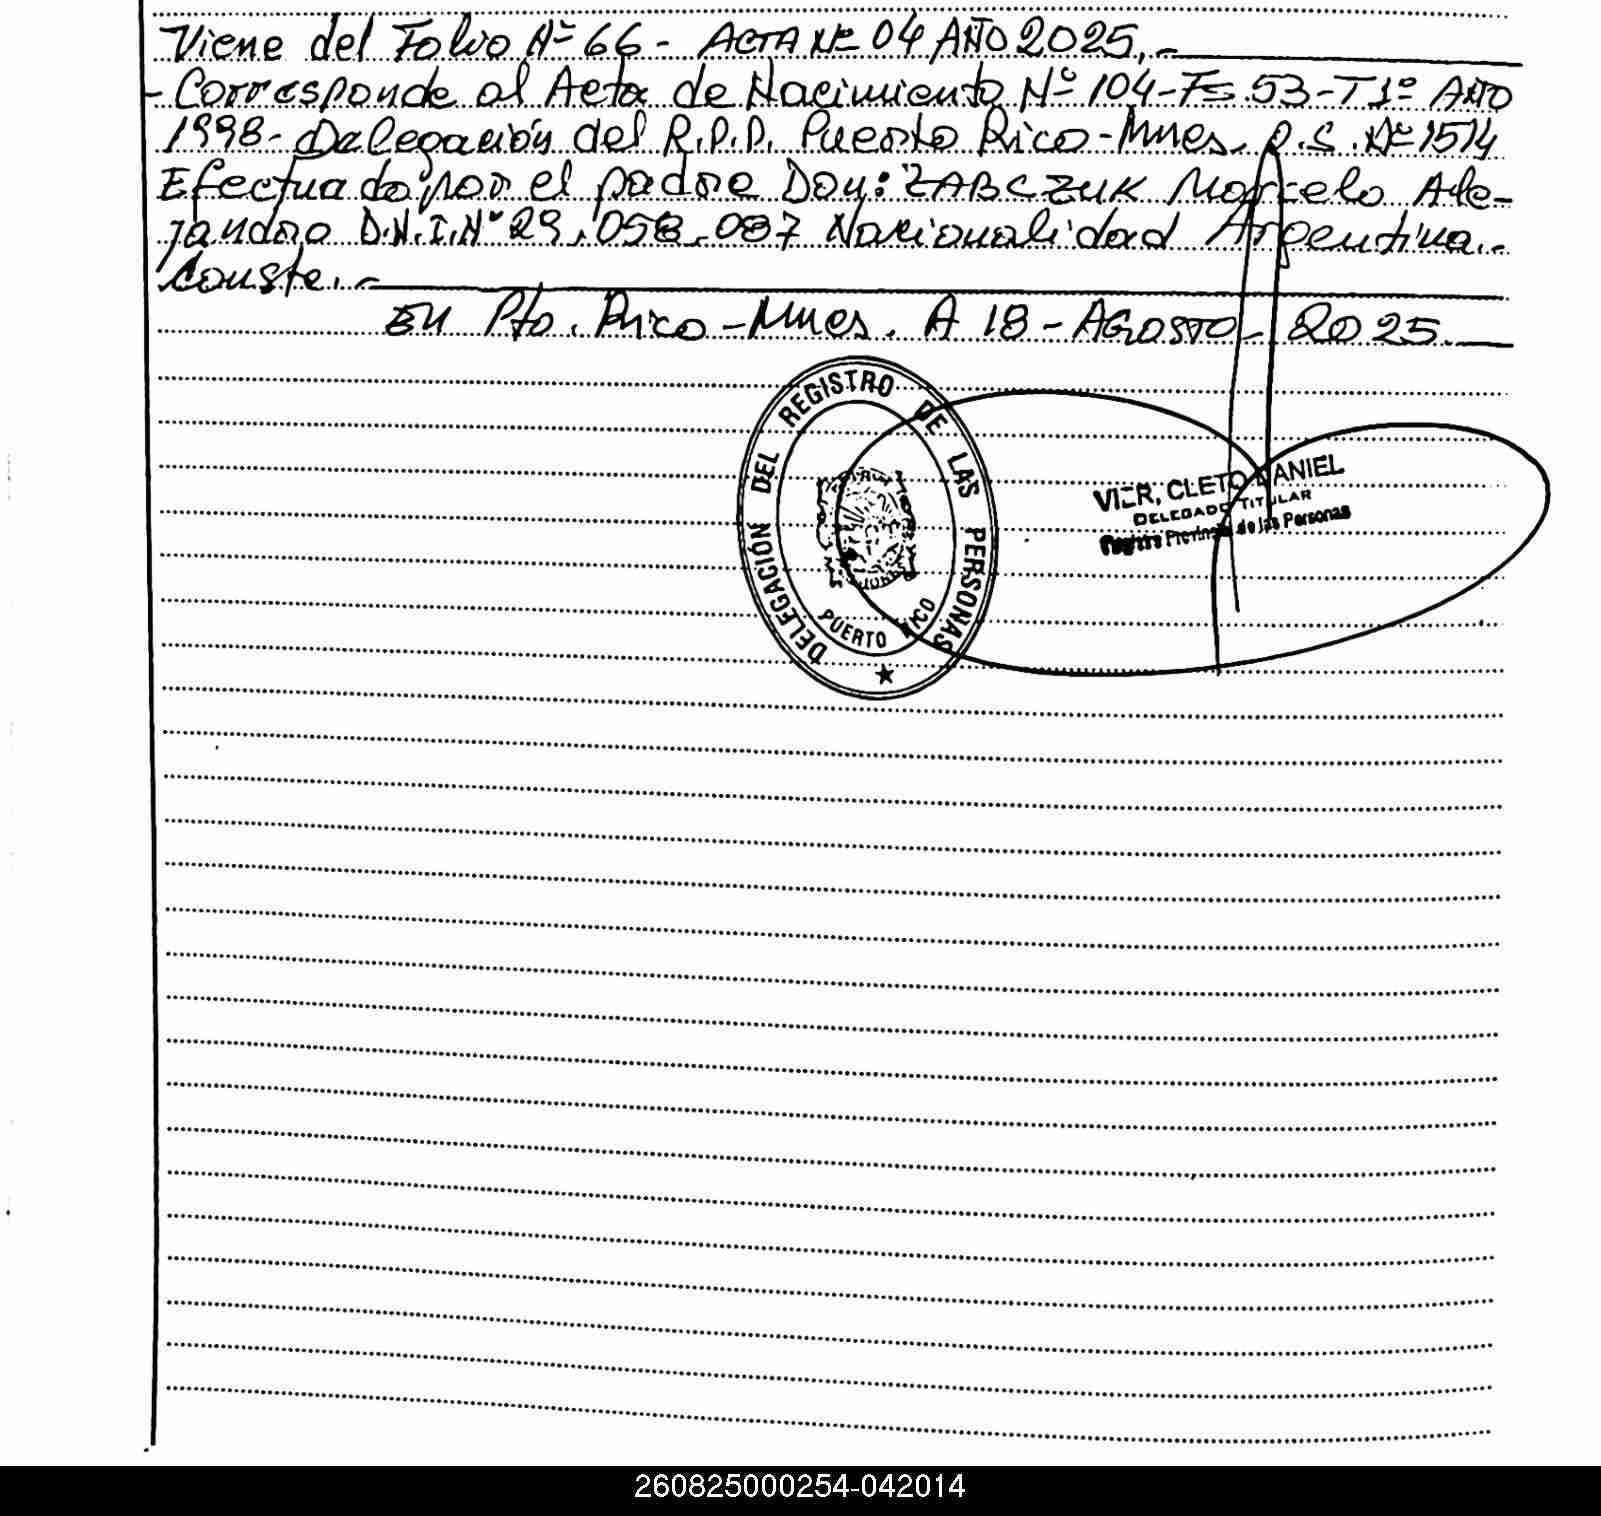 Viene del Folio Nº 66 - ACTA Nº 04 AÑO 2025.-
- Corresponde al Acta de Nacimiento Nº 104-Fs.53-T1º AÑO
1998- Delegación del R.P.P. Puerto Rico-Mnes. R.S. Nº 1514
Efectuado por el padre Don: ZABCZUK Marcelo Ale-
jandro D.N.I.Nº 29.058.087 Nacionalidad Argentina.-
Conste.-
EN Pto. Rico-Mnes. A 18-AGOSTO-2025.
DELEGACIÓN DEL REGISTRO DE LAS PERSONAS
PUERTO RICO
VIER, CLETO DANIEL
DELEGADO TITULAR
Registro Provincial de las Personas
260825000254-042014